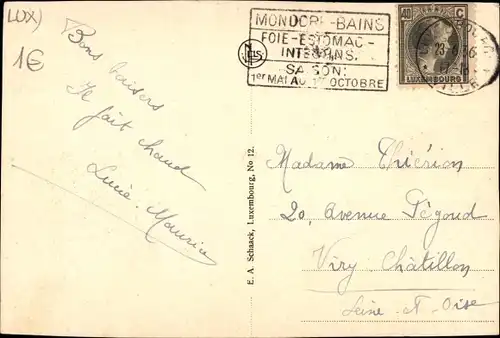 LUX)
1€
Bons baisers
Il fait chaud
Lucie. Maurice
MONDORF-BAINS
FOIE-ESTOMAC-
INTESTINS.
SAISON:
1er MAI AU 1er OCTOBRE
40 C
LUXEMBOURG
E. A. Schaack, Luxembourg, No 12.
Madame Thiérion
20, Avenue Pégoud
Viry Châtillon
Seine-et-Oise